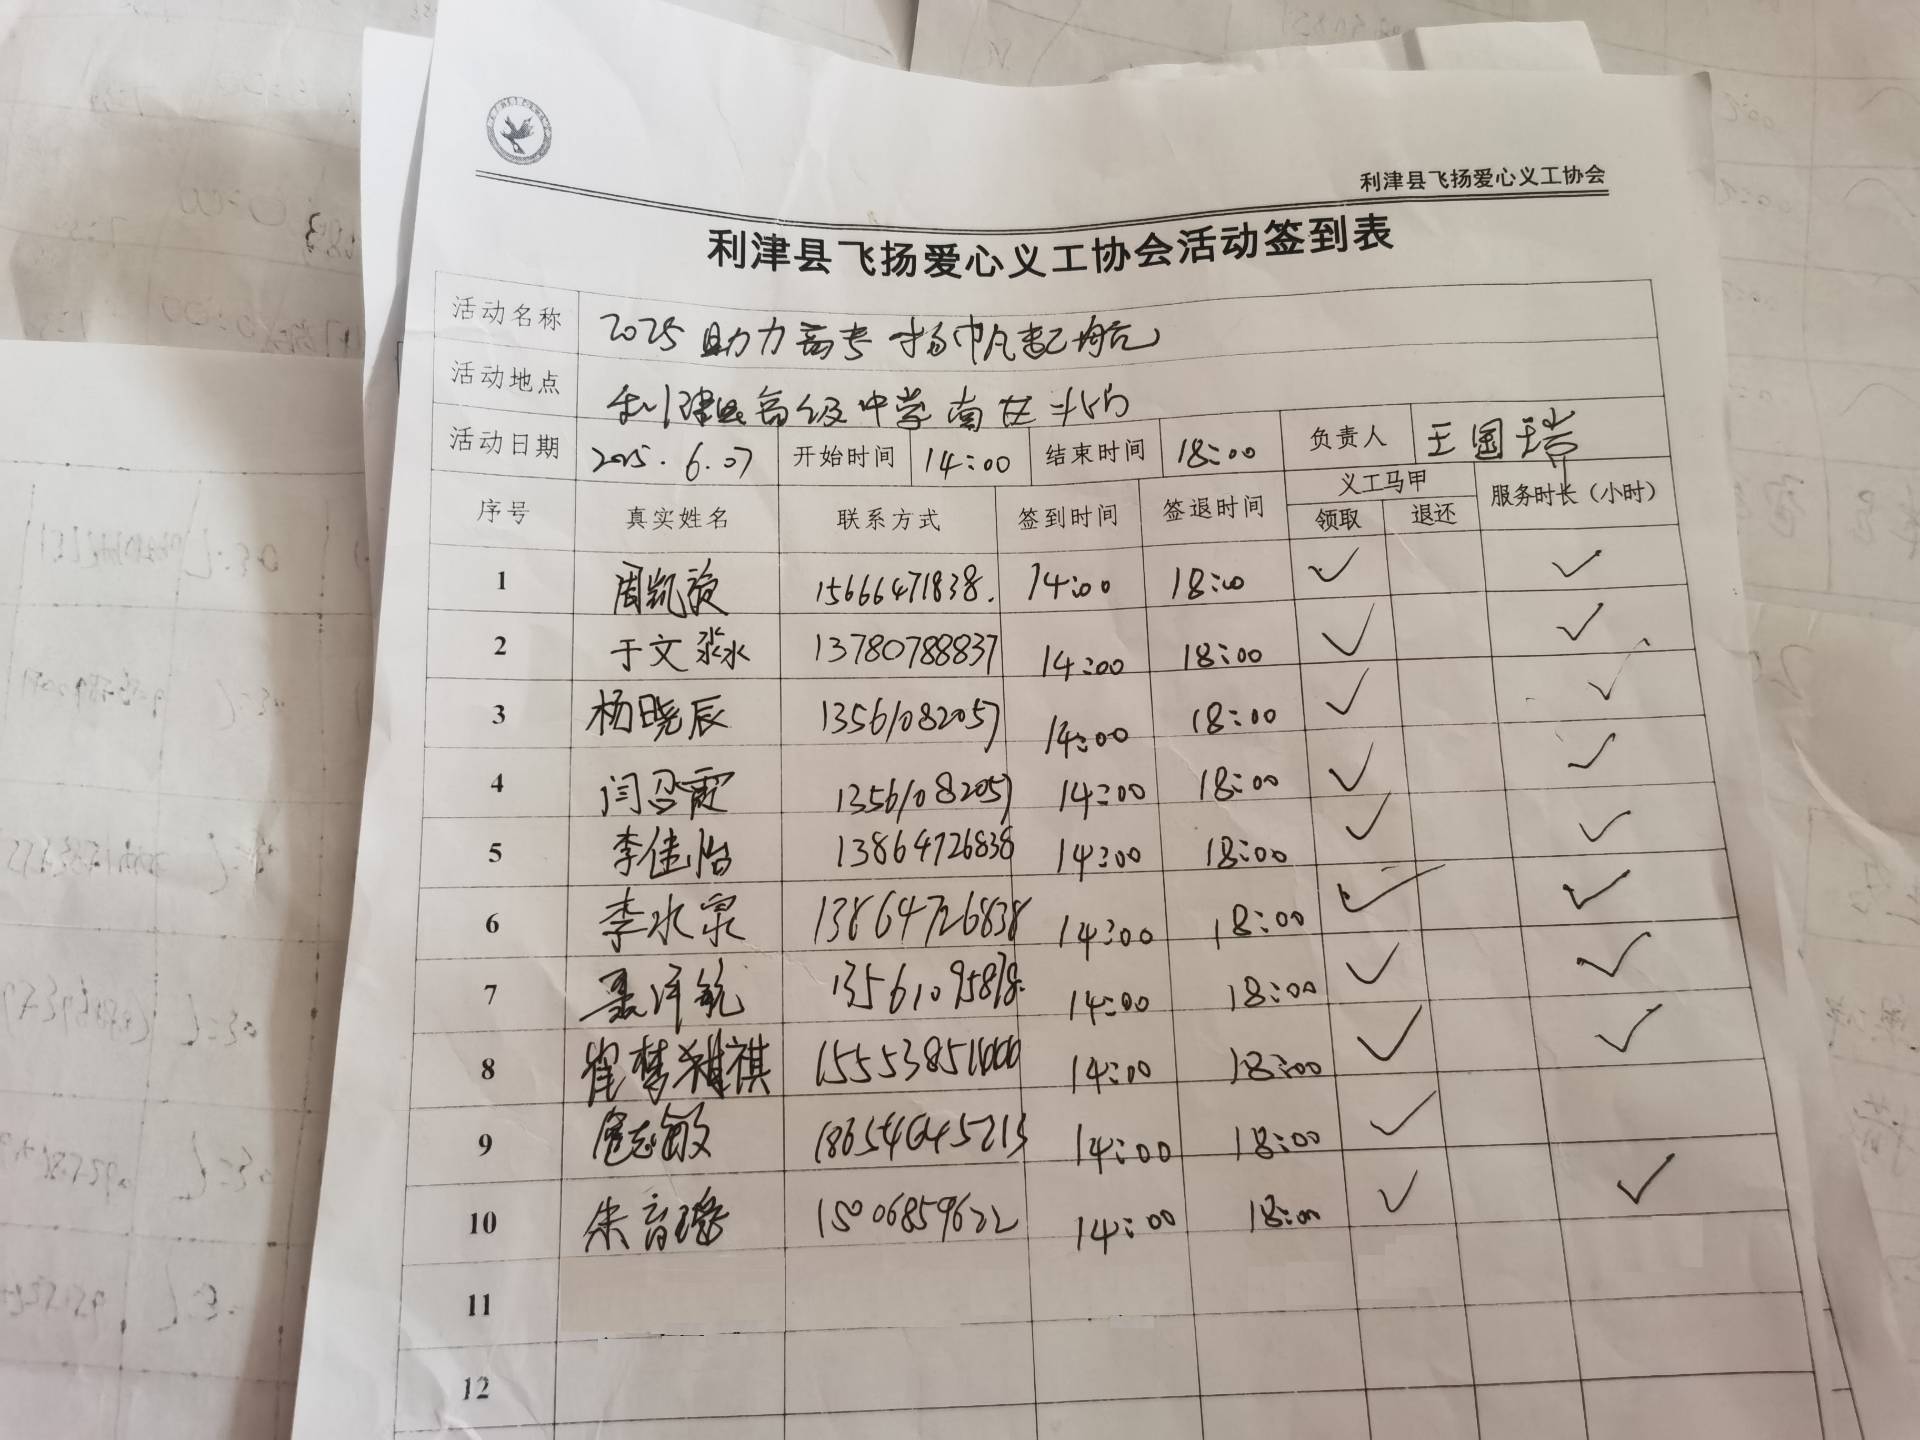 利津县飞扬爱心义工协会
利津县飞扬爱心义工协会活动签到表
活动名称 2025 助力高考 扬帆起航
活动地点 利津县高级中学南
活动日期 2025.6.07 开始时间 14:00 结束时间 18:00 负责人 王国瑞
序号 真实姓名 联系方式 签到时间 签退时间 义工马甲 服务时长（小时）
领取 退还
1 周凯旋 15666471838. 14:00 18:00 ✓ ✓
2 于文淼 13780788837 14:00 18:00 ✓ ✓
3 杨晓辰 13561082057 14:00 18:00 ✓ ✓
4 闫召霞 13561082057 14:00 18:00 ✓ ✓
5 李佳怡 13864726838 14:00 18:00 ✓ ✓
6 李水泉 13864726838 14:00 18:00 ✓ ✓
7 聂泽航 14:00 18:00 ✓ ✓
8 崔梦祺 15553851000 14:00 18:00 ✓ ✓
9 14:00 18:00 ✓
10 朱育璐 15006859622 14:00 18:00 ✓ ✓
11
12